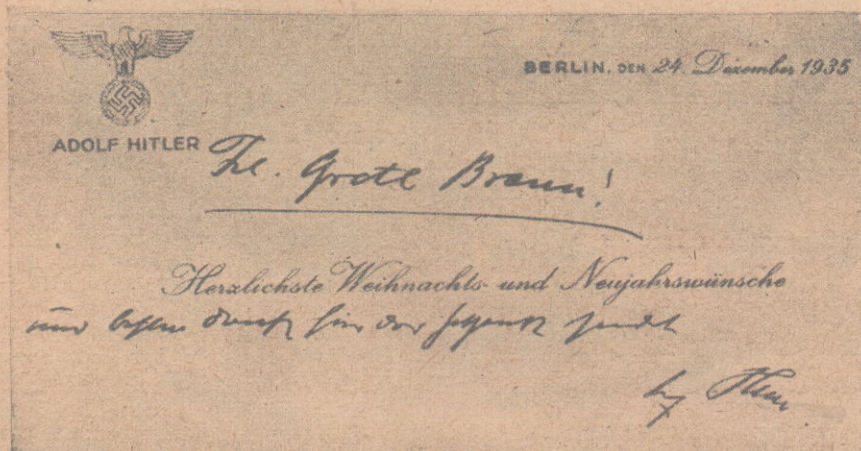 BERLIN, DEN 24. Dezember 1935
ADOLF HITLER
Frl. Gretl Braun!
Herzlichste Weihnachts- und Neujahrswünsche
und besten Dank für das Geschenk sendet